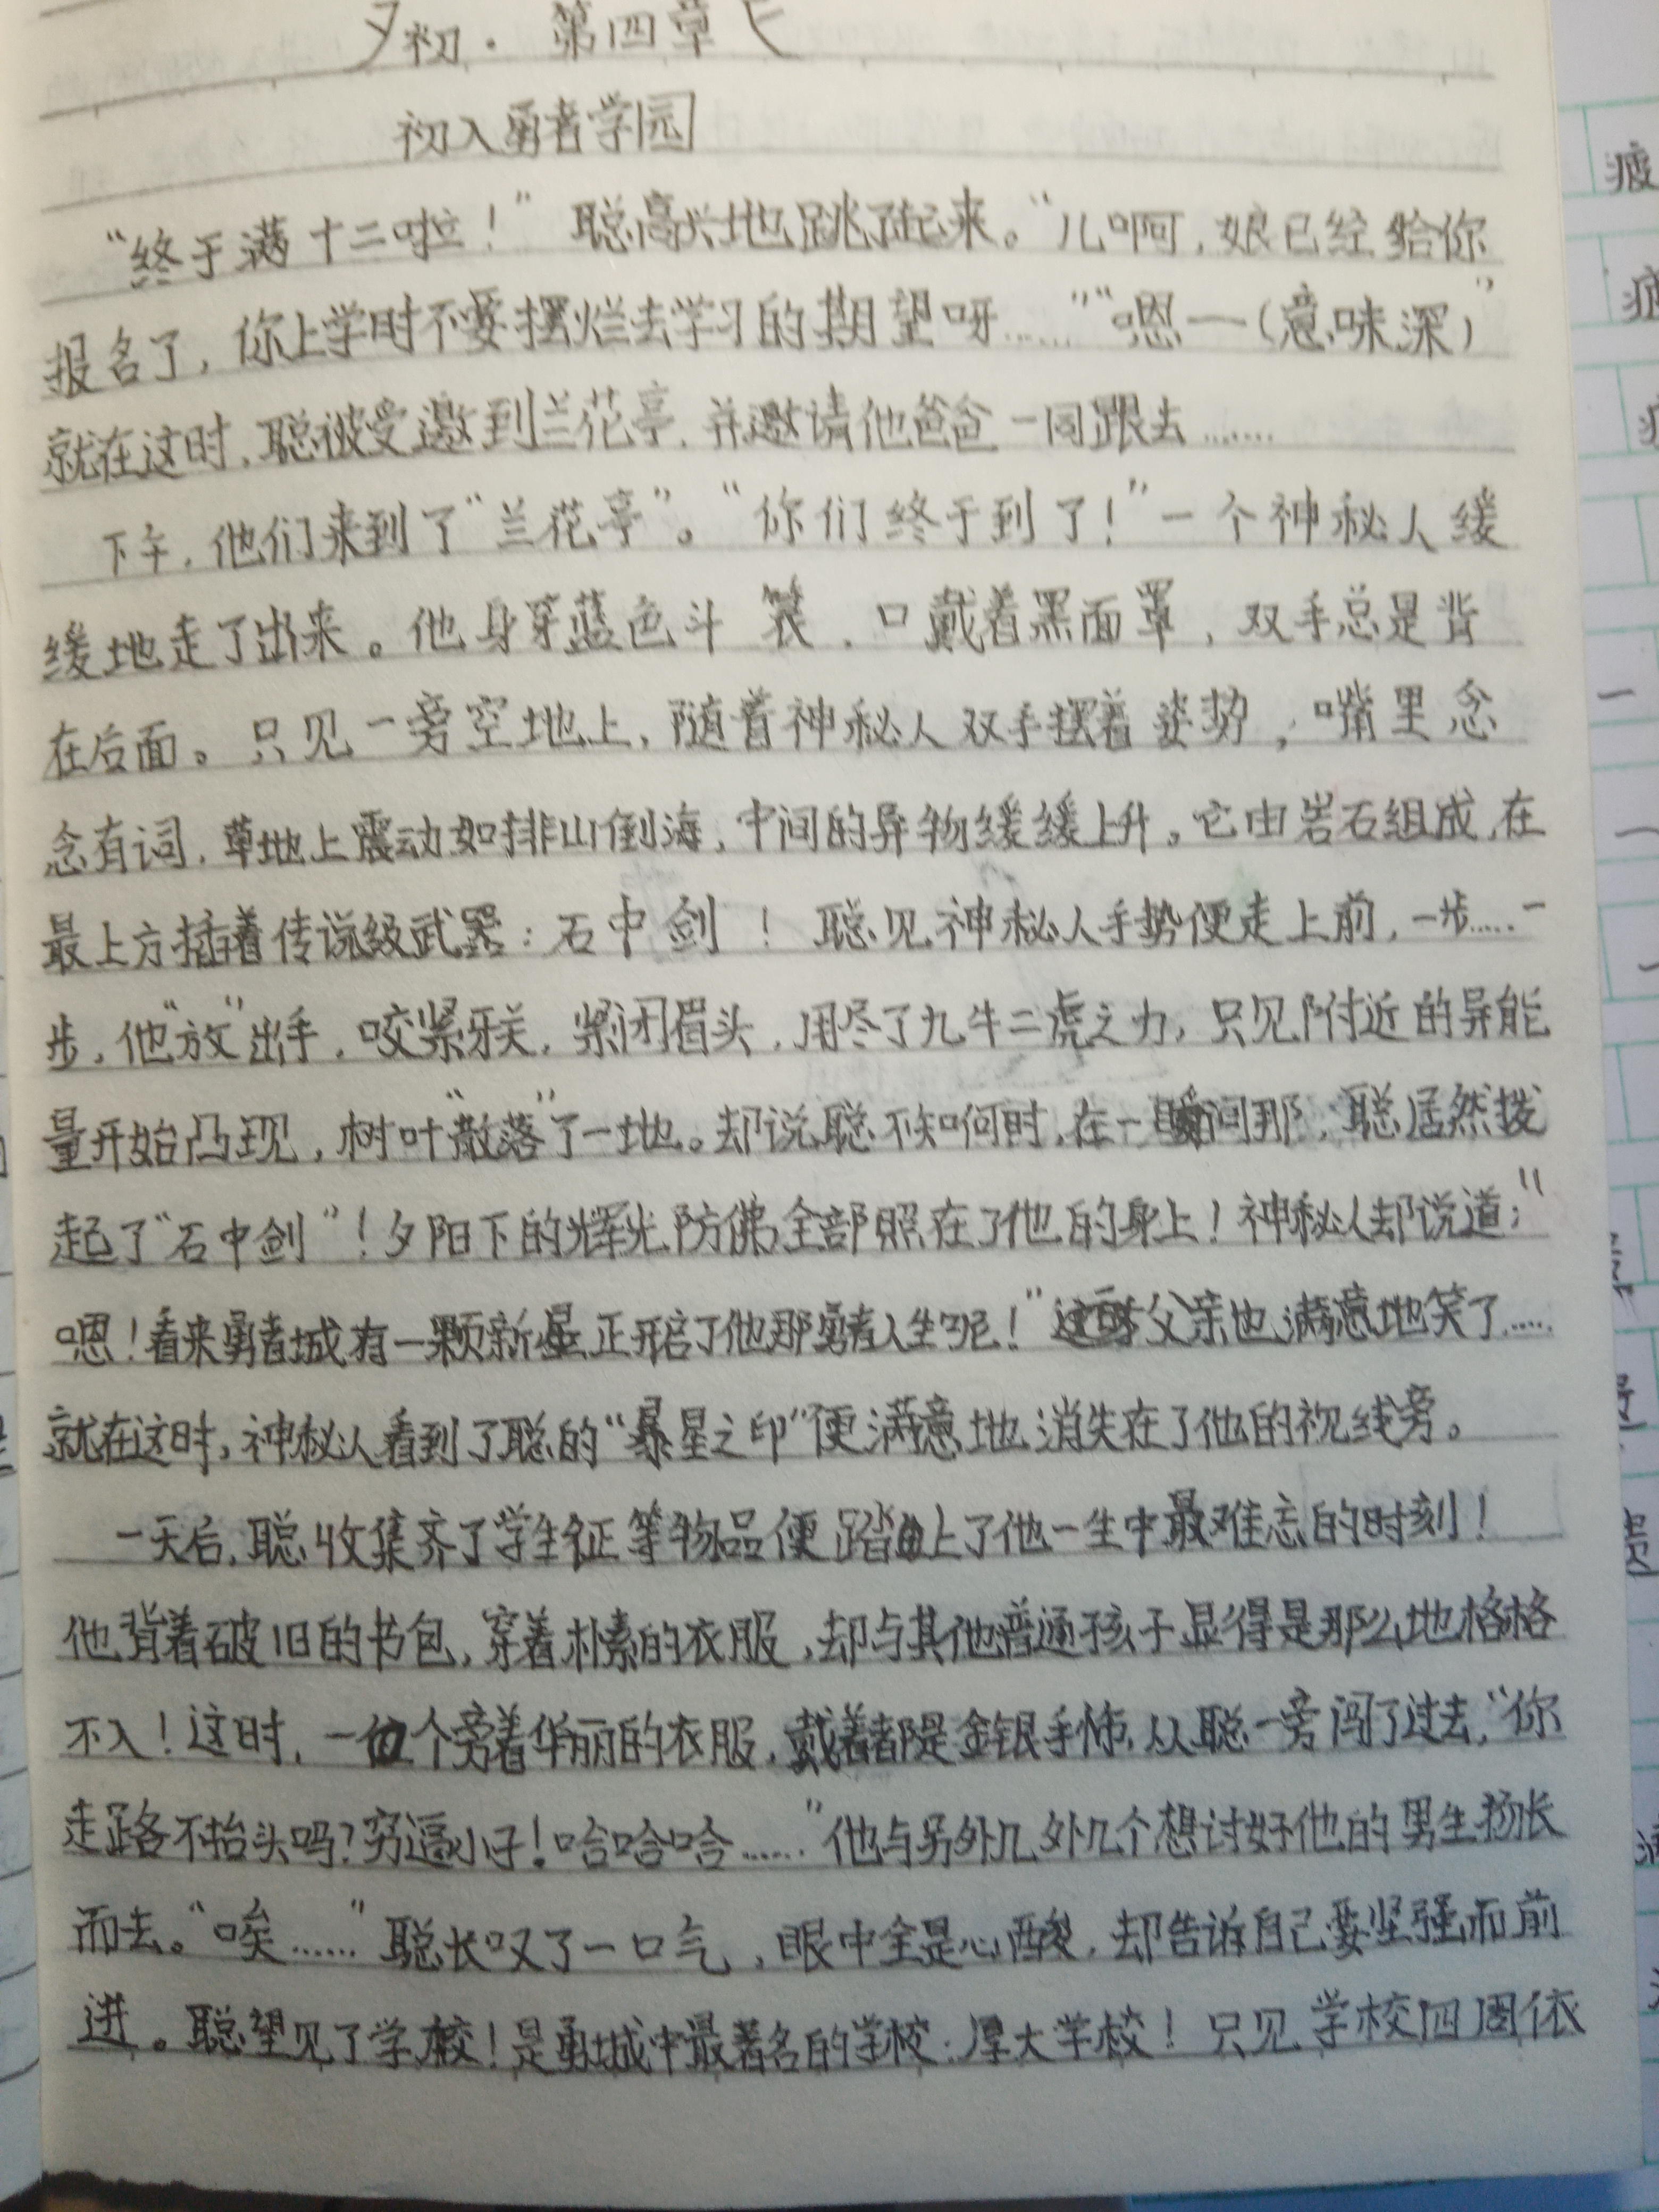 初·第四章
初入勇者学园
“终于满十二啦！”聪高兴地跳了起来。“儿啊，娘已经给你
报名了，你上学时不要摆烂去学习的期望呀……”“嗯一（意味深）”
就在这时，聪被受邀到兰花亭，并邀请他爸爸一同跟去……
下午，他们来到了“兰花亭”。“你们终于到了！”一个神秘人缓
缓地走了出来。他身穿蓝色斗篷，口戴着黑面罩，双手总是背
在后面。只见一旁空地上，随着神秘人双手摆着姿势，嘴里念
念有词，草地上震动如排山倒海，中间的异物缓缓上升。它由岩石组成，在
最上方插着传说级武器：石中剑！聪见神秘人手势便走上前，一步……一
步，他“放”出手，咬紧牙关，紧闭眉头，用尽了九牛二虎之力，只见附近的异能
量开始凸现，树叶“散落”了一地。却说聪不知何时，在一瞬间那，聪居然拨
起了“石中剑”！夕阳下的辉光防佛全部照在了他的身上！神秘人却说道：“
嗯！看来勇者城有一颗新星正开启了他那勇者人生呢！”父亲也满意地笑了……
就在这时，神秘人看到了聪的“暴星之印”便满意地消失在了他的视线旁。
一天后，聪收集齐了学生征等物品便踏上了他一生中最难忘的时刻！
他背着破旧的书包，穿着朴素的衣服，却与其他普通孩子显得是那么地格格
不入！这时，一个旁着华丽的衣服，戴着都是金银手饰，从聪一旁闯了过去，“你
走路不抬头吗？穷逼小子！哈哈哈……”他与另外几外几个想讨好他的男生扬长
而去。“唉……”聪长叹了一口气，眼中全是心酸，却告诉自己要坚强而前
进。聪望见了学校！是勇城中最著名的学校：厚大学校！只见学校四周依